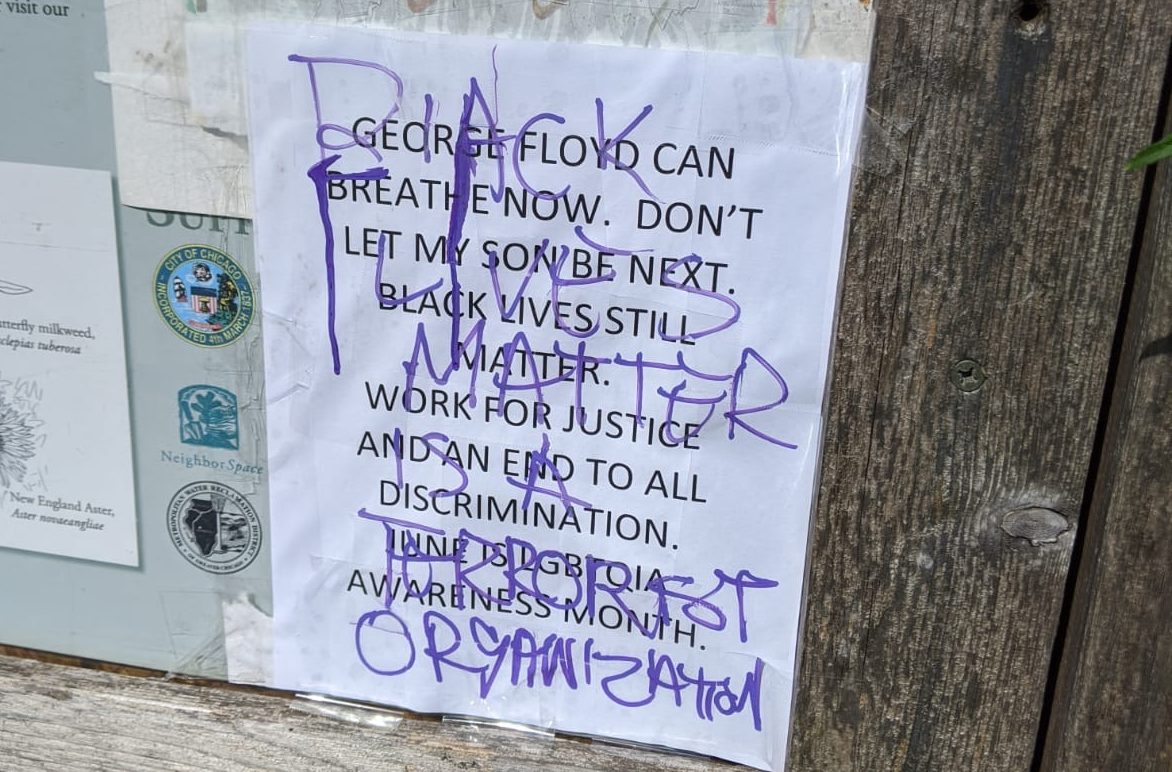 visit our
SUPP
CITY OF CHICAGO
INCORPORATED 4TH MARCH 1837
utterfly milkweed,
sclepias tuberosa
NeighborSpace
New England Aster,
Aster novaeangliae
METROPOLITAN WATER RECLAMATION DISTRICT
GEORGE FLOYD CAN
BREATHE NOW. DON'T
LET MY SON BE NEXT.
BLACK LIVES STILL
MATTER.
WORK FOR JUSTICE
AND AN END TO ALL
DISCRIMINATION.
JUNE IS LGBTQIA
AWARENESS MONTH.
BlACK
LIVES
MATTER
IS A
TERRORIST
ORGANIZATION